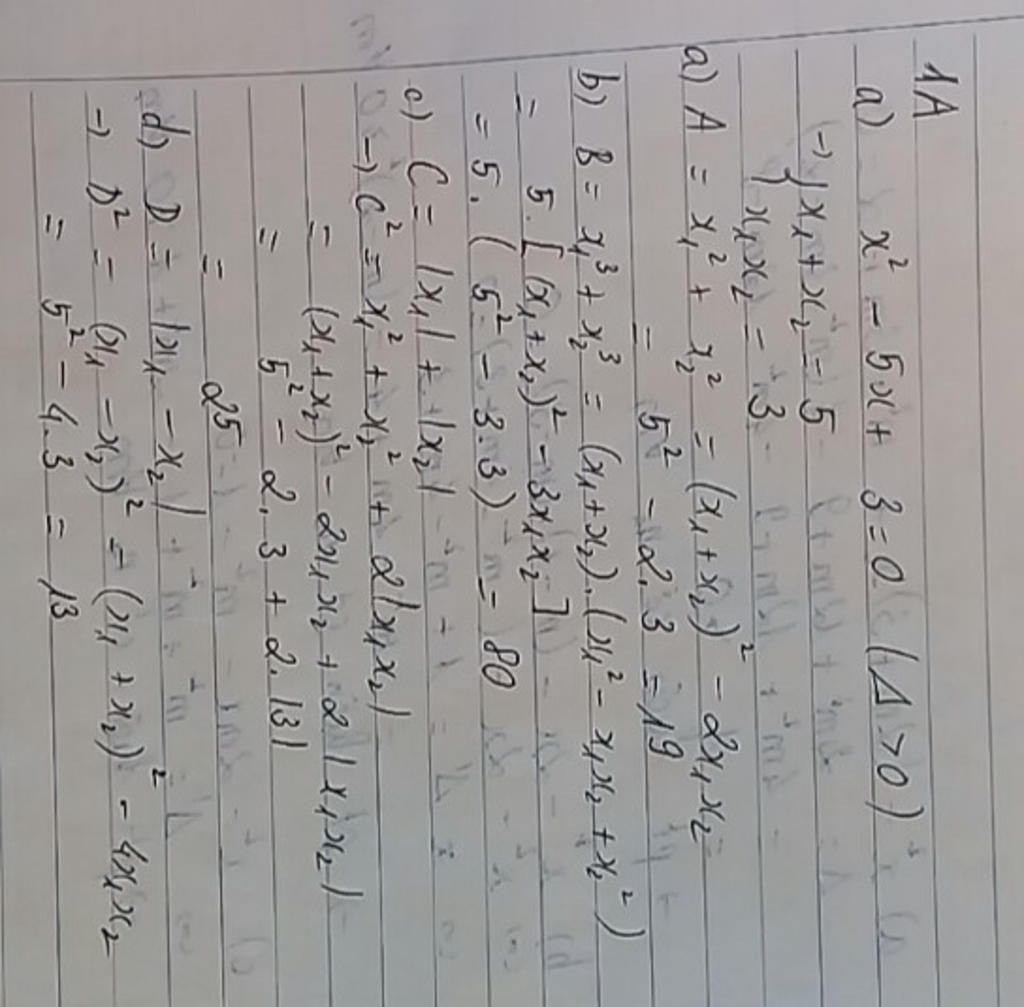 1A
a) x² - 5x + 3 = 0 (Δ > 0)
→ { x₁ + x₂ = 5
x₁x₂ = 3
a) A = x₁² + x₂² = (x₁ + x₂)² - 2x₁x₂ =
= 5² - 2.3 = 19
b) B = x₁³ + x₂³ = (x₁ + x₂).(x₁² - x₁x₂ + x₂²)
= 5.[(x₁ + x₂)² - 3x₁x₂]
= 5.(5² - 3.3) = 80
c) C = |x₁| + |x₂|
→ C² = x₁² + x₂² + 2|x₁x₂|
= (x₁ + x₂)² - 2x₁x₂ + 2|x₁x₂|
= 5² - 2.3 + 2.|3|
= 25
d) D = |x₁ - x₂|
→ D² = (x₁ - x₂)² = (x₁ + x₂)² - 4x₁x₂
= 5² - 4.3 = 13